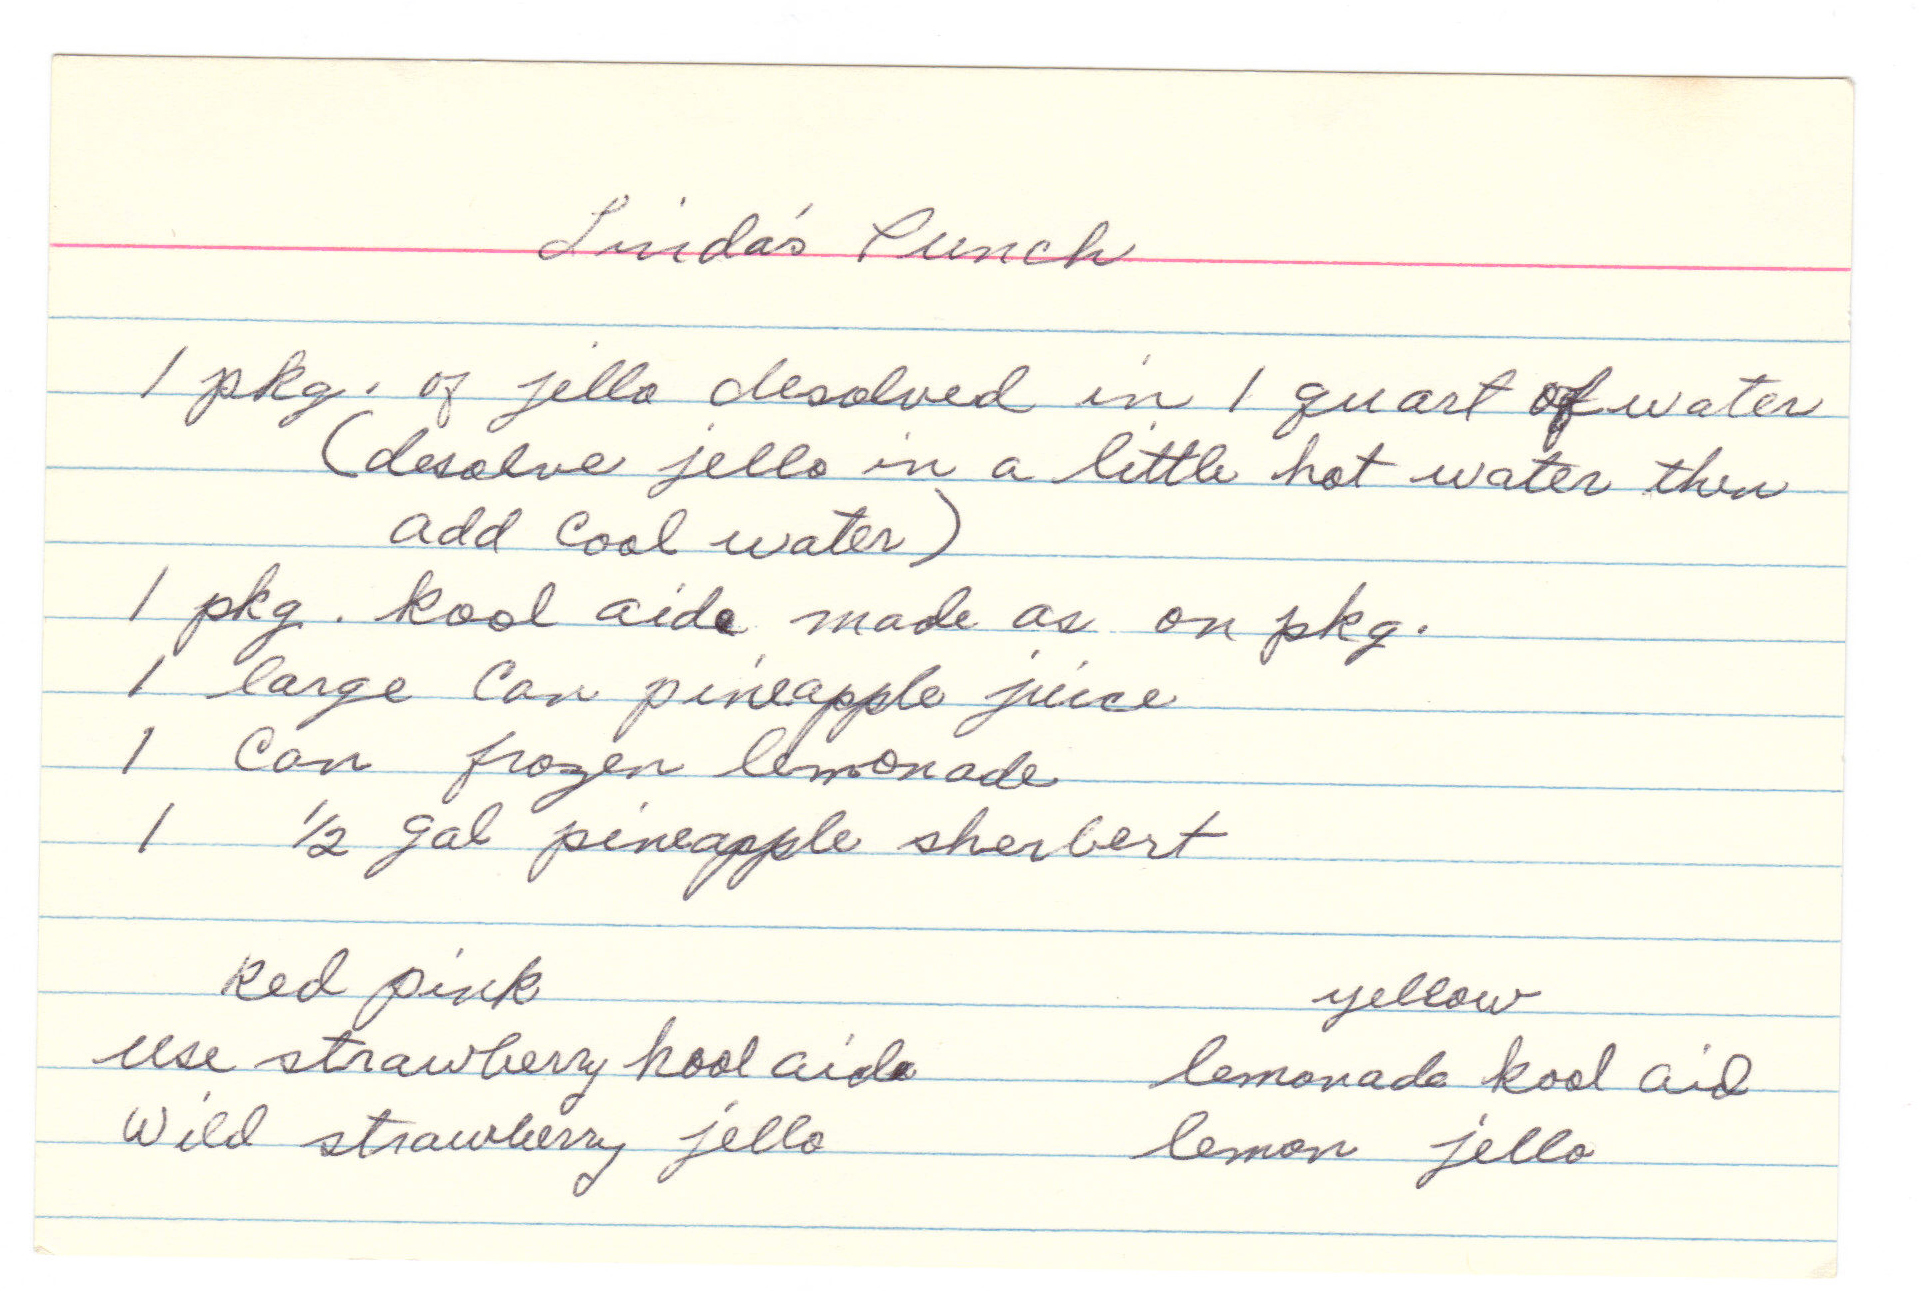 Linda's Punch
1 pkg. of jello desolved in 1 quart of water
(desolve jello in a little hot water then
add cool water)
1 pkg. kool aide made as on pkg.
1 large can pineapple juice
1 can frozen lemonade
1 1/2 gal pineapple sherbert
Red pink yellow
use strawberry kool aide lemonade kool aid
Wild strawberry jello lemon jello